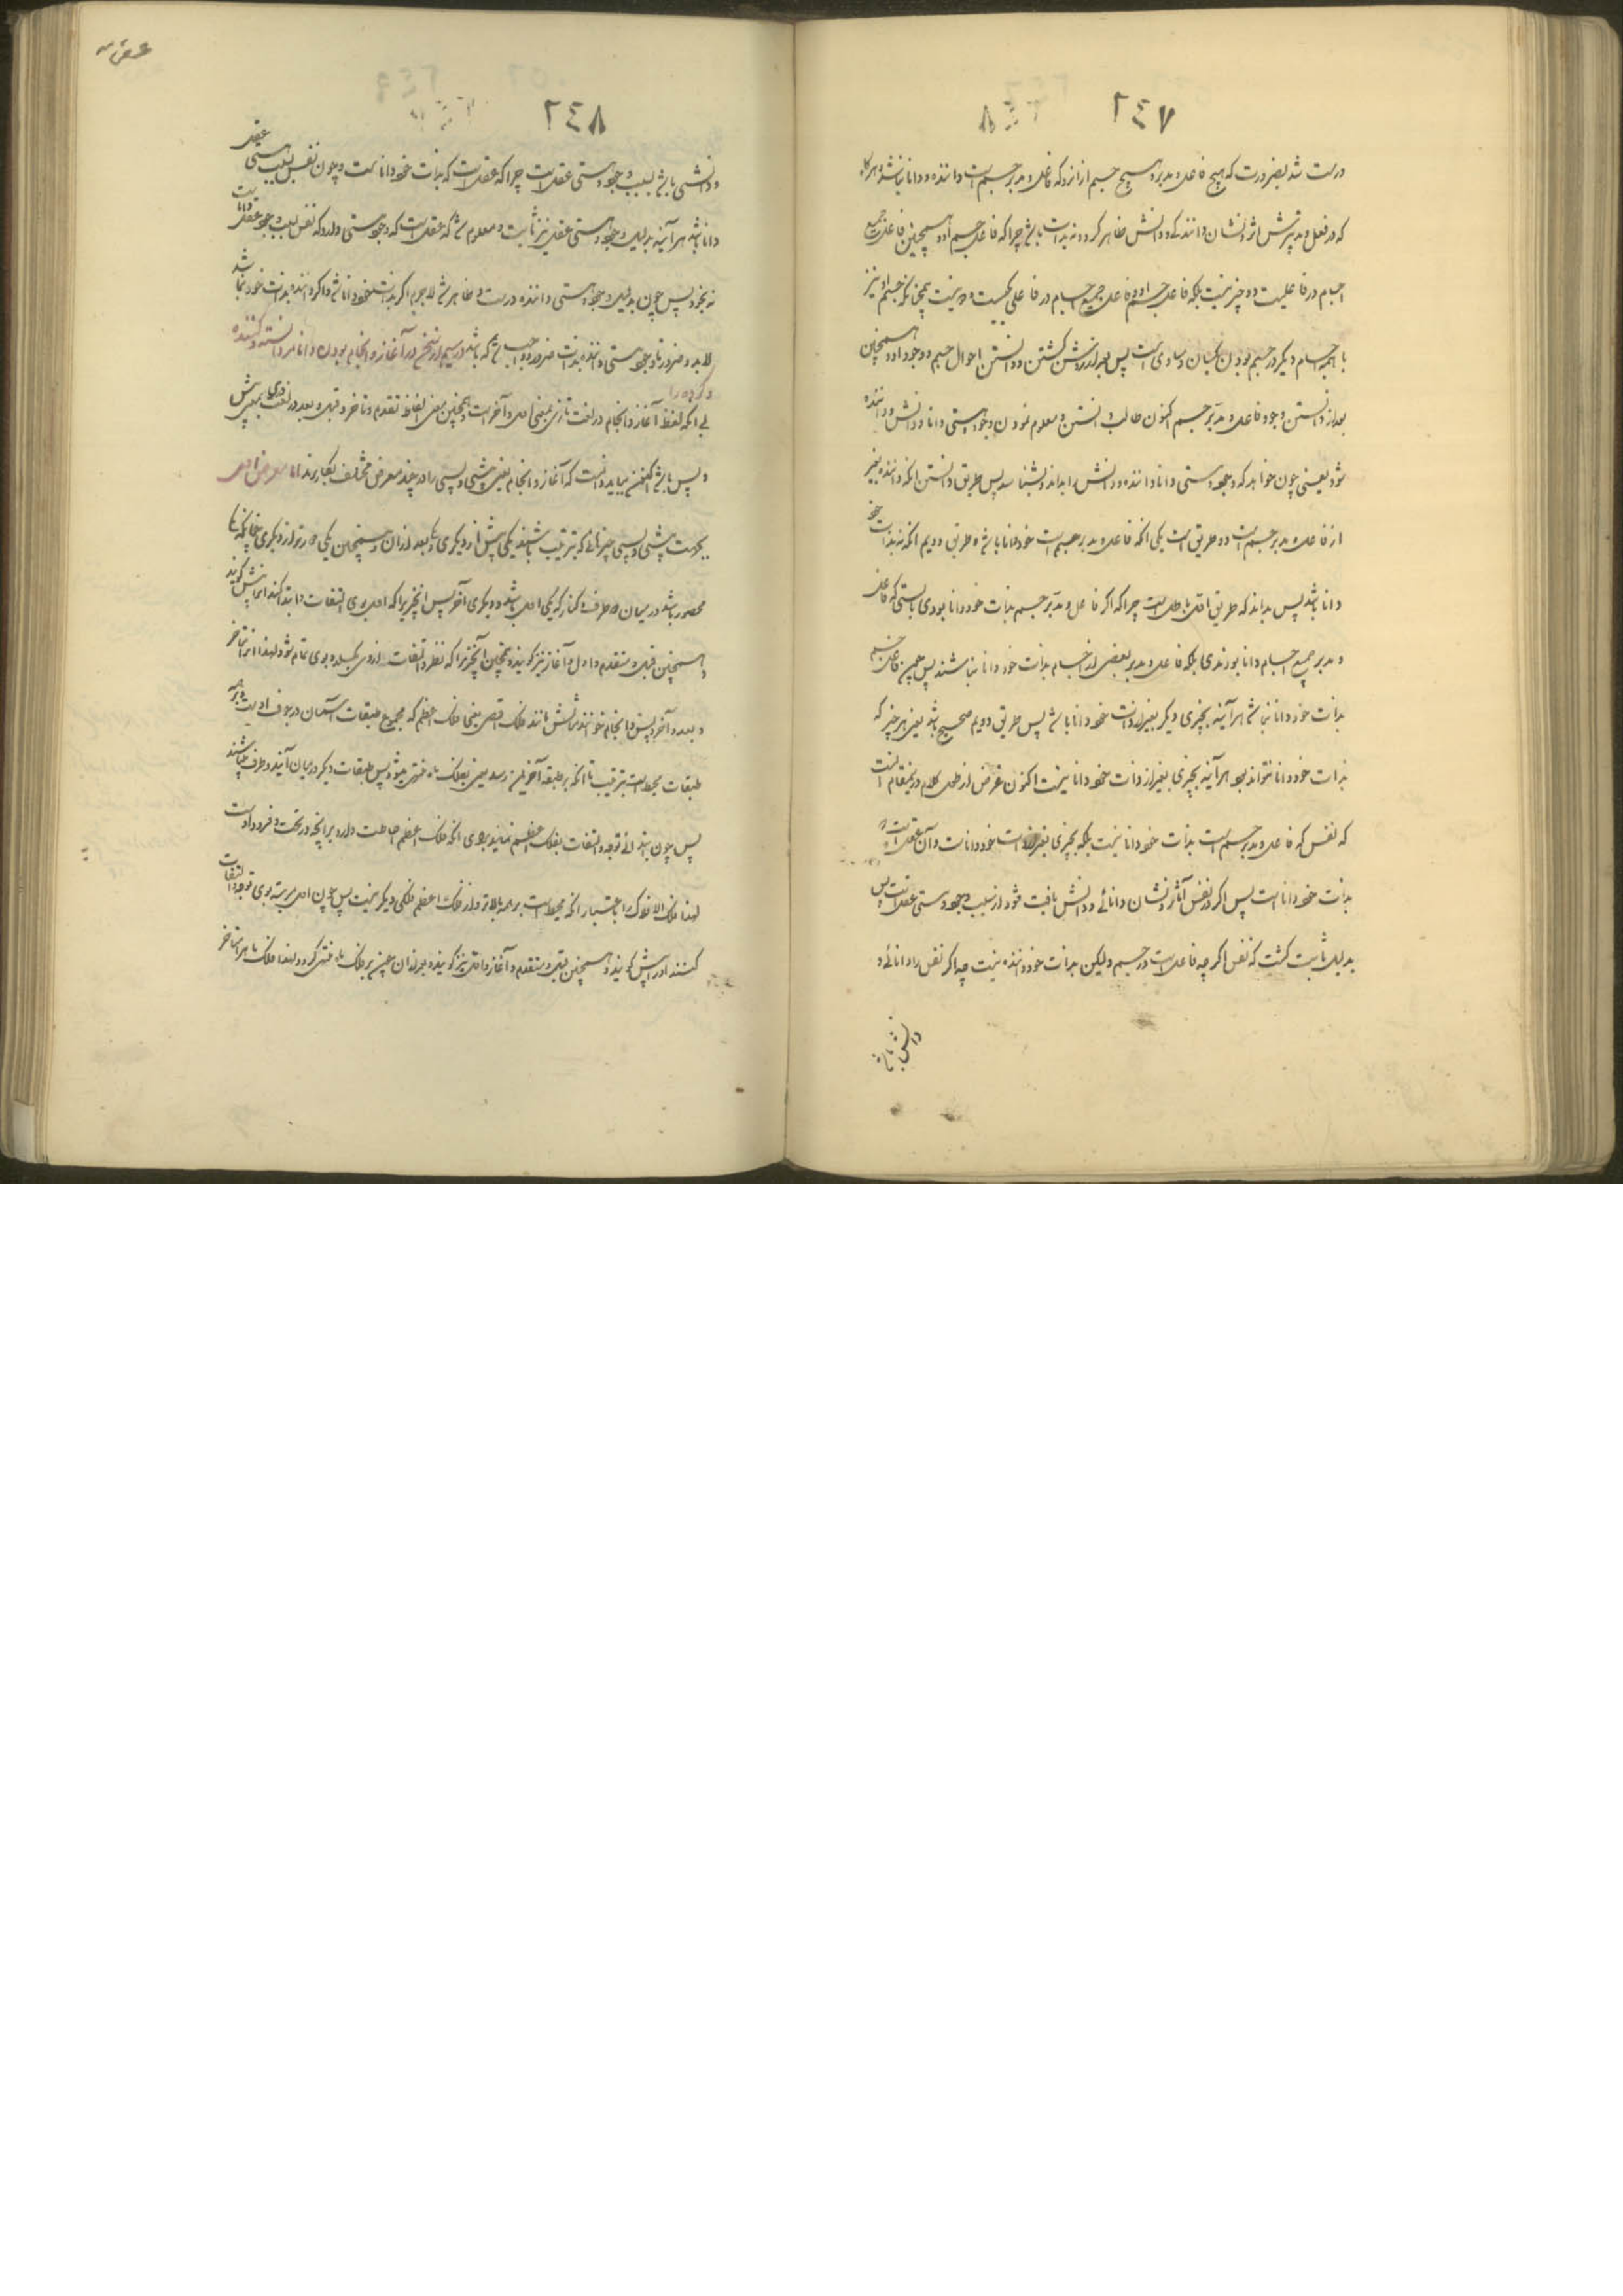 ٢٤٧
درست شد بضرورت که هیچ فاعل و مدبر هیچ جسم از انرو که فاعل و مدبر جسم است داننده و دانا نباشد و هرگاه
که در فعل و تدبیرش اثر و نشان دانندگی و دانش ظاهر گردد نه بذات باشد چرا که فاعل جسم او و همچنین فاعل جمیع
اجسام در فاعلیت دو چیز نیست بلکه فاعل جسم او و فاعل جمیع اجسام در فاعلی یکیست و دو نیست همچنانکه جسم او نیز
با همه اجسام دیگر در جسم بودن یکسان و مساوی است پس بعد از روشن گشتن و دانستن احوال جسم و وجود او و همچنین
بعد از دانستن وجود فاعل و مدبر جسم اکنون طالب دانستن و معلوم نمودن وجود و هستی دانا و دانش و داننده
شود یعنی چون خواهد که وجود و هستی دانا و داننده و دانش را بداند و بشناسد پس طریق دانستن آنکه داننده بغیر
از فاعل و مدبر جسم است دو طریق است یکی آنکه فاعل و مدبر جسم است خود دانا باشد و طریق دویم آنکه نه بذات خود
دانا باشد پس بداند که طریق اول باطل است چرا که اگر فاعل و مدبر جسم بذات خود دانا بودی بایستی که فاعل
و مدبر جمیع اجسام دانا بودندی بلکه فاعل و مدبر بعضی از اجسام بذات خود دانا نباشند پس چون فاعل جسم
بذات خود دانا نباشد هرآینه بچیزی دیگر بغیر از ذات خود دانا باشد پس طریق دویم صحیح باشد یعنی هر چیز که
بذات خود دانا نتواند بود هرآینه بچیزی بغیر از ذات خود دانا نیست اکنون غرض از طول کلام درینمقام آنست
که نفس که فاعل و مدبر جسم است بذات خود دانا نیست بلکه بچیزی بغیر ذات خود داناست و آن عقل است که
بذات خود دانا است پس اگر در نفس آثار و نشان دانائی و دانش یافت شود از سبب وجود و هستی عقل است پس
بدلیل ثابت گشت که نفس اگرچه فاعل است در جسم ولیکن بذات خود داننده نیست چه اگر نفس را دانائی و
دانش باشد
عقل
٢٤٨
و دانشی باشد بسبب وجود و هستی عقل است چرا که عقل است که بذات خود دانا است و چون نفس بسبب هستی عقل
دانا باشد هرآینه بدلیل وجود و هستی عقل نیز ثابت و معلوم شد که عقل است که وجود و هستی دارد که نفس بسبب وجود عقل داناست
نه بخود پس چون بدلیل وجود و هستی داننده درست و ظاهر شد لاجرم اگر بذات خود دانا شد و اگر داننده بذات خود نباشد
لابد و ضرور تا وجود هستی داننده بذات ضرور و واجب باشد که باشد در سیم از سخن در آغاز و انجام بودن دانا مر دانسته و کننده
و کرده را
لی آنکه لفظ آغاز و انجام در لغت تازی بمعنی اول و آخر است و همچنین معنی لفظ تقدم و تاخر و قبل و بعد در لغت دری بمعنی پیش
و پس باشد اکنون بباید دانست که آغاز و انجام یعنی پیشی و پسی را در چند معرض مختلف بکار برند اما معرض اول
یکیست پیشی و پسی چیزهائی که بترتیب باشند یکی پیش از دیگری و یکی بعد از آن و همچنین یکی دورتر از دیگری چنانکه
محصور باشد در میان دو طرف و کنار که یکی اول باشد و دیگری آخر پس آنچیز را که اول بوی التفات و ابتدا کنند آنرا پیش گویند
و همچنین قبل و متقدم و اول و آغاز نیز گویند و همچنین آنچیز را که نظر و التفات از وی گذرد و بوی تمام شود لهذا آنرا متاخر
و بعد و آخر و پس و انجام خوانند مثالش مانند فلک اقصی یعنی فلک اعظم که مجموع طبقات آسمان در جوف اویست و بر همه
طبقات محیط است بترتیب تا آنکه بر طبقه آخرین رسد یعنی بفلک ماه منتهی میشود پس طبقات دیگر در میان آیند و دو طرف باشند
پس چون ابتدای توجه و التفات بفلک اعظم نمایند بروی آنکه فلک اعظم احاطت دارد بر آنچه در تحت و فرود اوست
لهذا فلک الافلاک را باعتبار آنکه محیط است بر همه بالاتر و از فلک اعظم فلکی دیگر نیست پس چون اول مرتبه بوی توجه و التفات
کنند او را پیش گویند و همچنین قبل و متقدم و آغاز و اول نیز گویند و بعد از آن چون بر فلک ماه منتهی گردد لهذا فلک ماه را متاخر